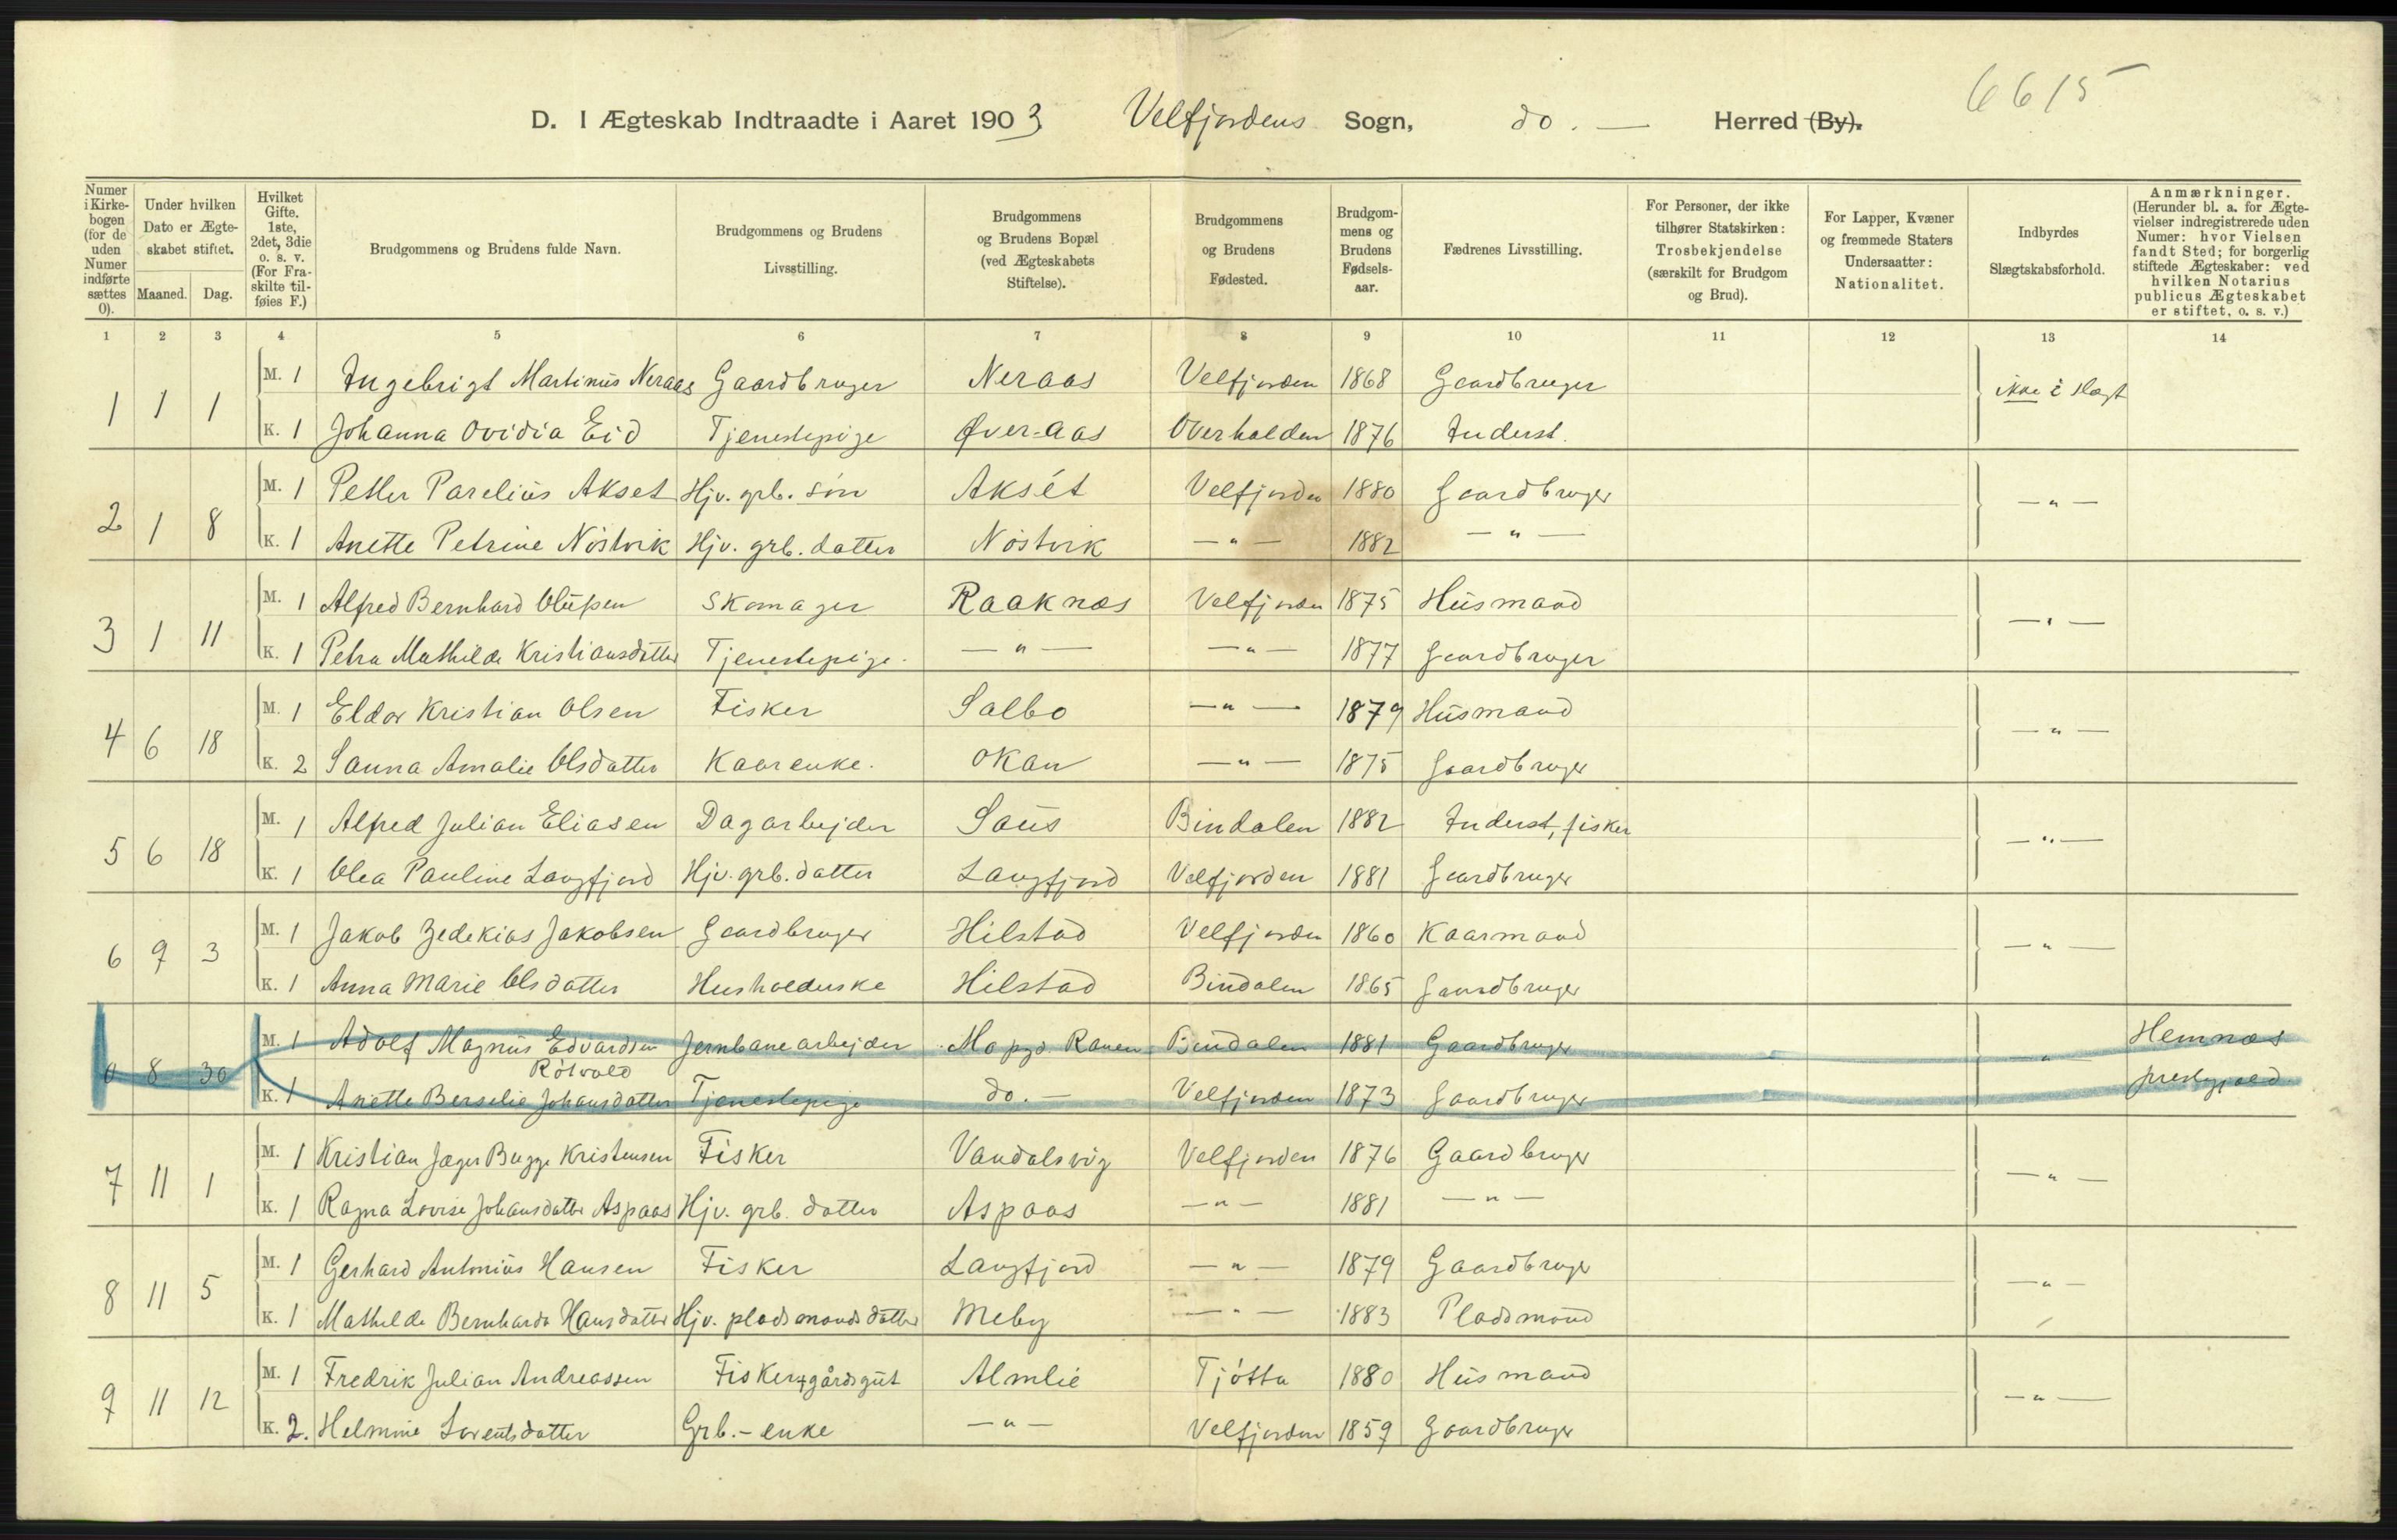 6615
D. I Ægteskab Indtraadte i Aaret 1903 Velfjordens Sogn, do. — Herred (By).
Numer i Kirkebogen (for de uden Numer indførte sættes 0).
Under hvilken Dato er Ægteskabet stiftet.
Maaned. Dag.
Hvilket Gifte. 1ste, 2det, 3die o. s. v. (For Fraskilte tilføies F.)
Brudgommens og Brudens fulde Navn.
Brudgommens og Brudens Livsstilling.
Brudgommens og Brudens Bopæl (ved Ægteskabets Stiftelse).
Brudgommens og Brudens Fødested.
Brudgommens og Brudens Fødselsaar.
Fædrenes Livsstilling.
For Personer, der ikke tilhører Statskirken: Trosbekjendelse (særskilt for Brudgom og Brud).
For Lapper, Kvæner og fremmede Staters Undersaatter: Nationalitet.
Indbyrdes Slægtskabsforhold.
Anmærkninger. (Herunder bl. a. for Ægtevielser indregistrerede uden Numer: hvor Vielsen fandt Sted; for borgerlig stiftede Ægteskaber: ved hvilken Notarius publicus Ægteskabet er stiftet, o. s. v.)
1 2 3 4 5 6 7 8 9 10 11 12 13 14
1 1 1 M. 1 Ingebrigt Martinus Neraas Gaardbruger Neraas Velfjorden 1868 Gaardbruger ikke i slægt
K. 1 Johanna Ovidia Eid Tjenestepige Øver-aas Overhalden 1876 Inderst.
2 1 8 M. 1 Petter Parelius Akset Hjv. grb. søn Aksét Velfjorden 1880 Gaardbruger — " —
K. 1 Anette Petrine Nøstvik Hjv. grb. datter Nøstvik — " — 1882 — " —
3 1 11 M. 1 Alfred Bernhard Olufsen Skomager Raaknæs Velfjorden 1875 Husmand — " —
K. 1 Petra Mathilde Kristiansdatter Tjenestepige — " — — " — 1877 Gaardbruger
4 6 18 M. 1 Eldor Kristian Olsen Fisker Salbo — " — 1879 Husmand — " —
K. 2 Sanna Amalie Olsdatter Kaarenke. Okan — " — 1875 Gaardbruger
5 6 18 M. 1 Alfred Julian Eliasen Dagarbejder Saus Bindalen 1882 Inderst, fisker — " —
K. 1 Olea Pauline Langfjord Hjv. grb. datter Langfjord Velfjorden 1881 Gaardbruger
6 9 3 M. 1 Jakob Zedekias Jakobsen Gaardbruger Hilstad Velfjorden 1860 Kaarmand — " —
K. 1 Anna Marie Olsdatter Husholderske Hilstad Bindalen 1865 Gaardbruger
0 8 30 M. 1 Adolf Magnus Edvardsen Jernbanearbejder Mo pgd. Ranen Bindalen 1881 Gaardbruger — " — Hemnæs
Røtvold
K. 1 Anette Berselie Johansdatter Tjenestepige do. — Velfjorden 1873 Gaardbruger prestegjæld
7 11 1 M. 1 Kristian Jæger Bugge Kristensen Fisker Vandalsvig Velfjorden 1876 Gaardbruger — " —
K. 1 Ragna Lovise Johansdatter Aspaas Hjv. grb. datter Aspaas — " — 1881 — " —
8 11 5 M. 1 Gerhard Antonius Hansen Fisker Langfjord — " — 1879 Gaardbruger — " —
K. 1 Mathilde Bernharda Hansdatter Hjv. pladsmands datter Meby — " — 1883 Pladsmand
9 11 12 M. 1 Fredrik Julian Andreassen Fisker, gårdsgut Almlie Tjøtta 1880 Husmand — " —
K. 2. Helmine Lorentsdatter Grb.- enke — " — Velfjorden 1859 Gaardbruger